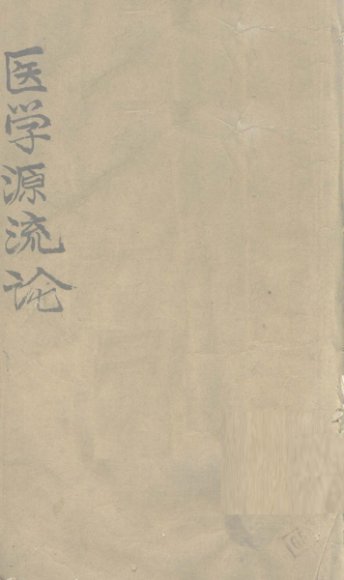 医学源流论